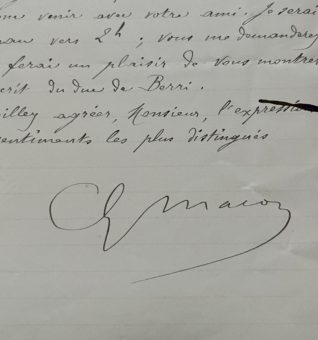 me venir avec votre ami. Je serai
vers 2h ; vous me demanderez
ferai un plaisir de vous montrer
crit du duc de Berri.
illez agréer, Monsieur, l'expression
sentiments les plus distingués
G Macon